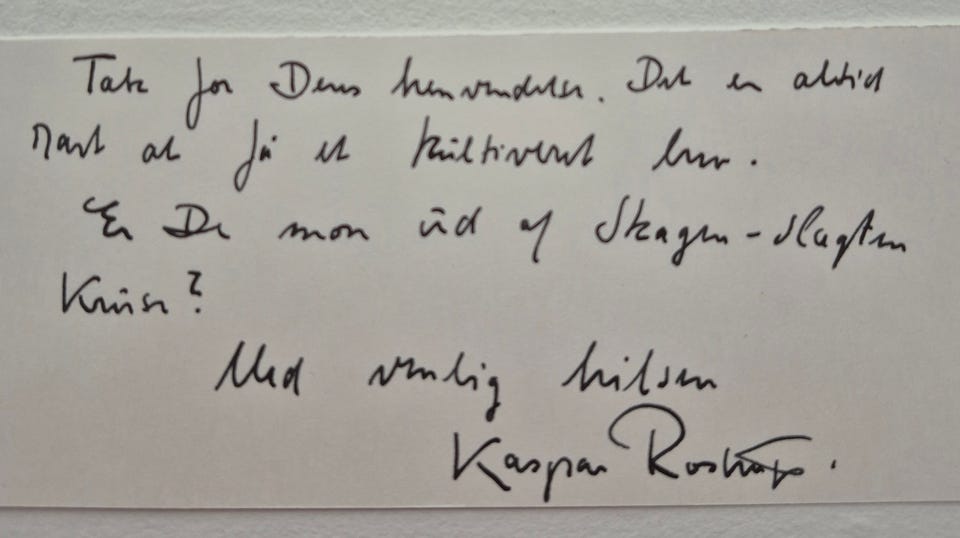 Tak for Deres henvendelse. Det er altid
rart at få et kultiveret brev.
Er De mon ud af Skagen-slægten
Kruse?
Med venlig hilsen
Kaspar Rostrup.